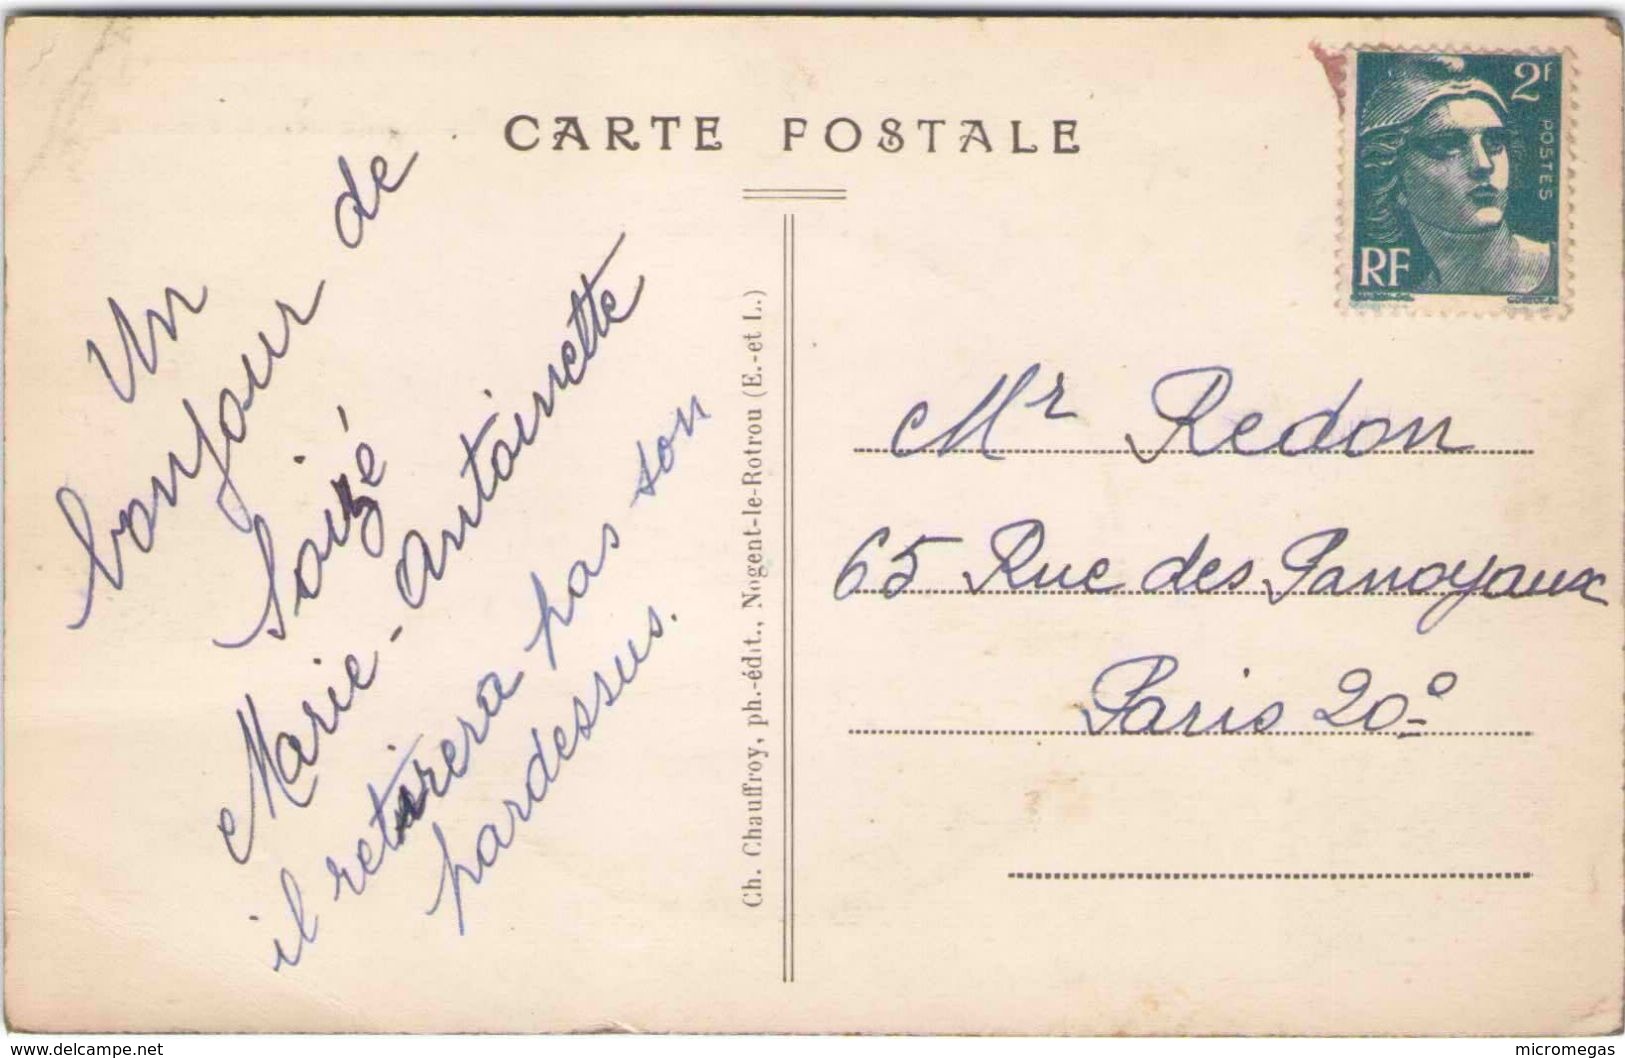 CARTE POSTALE
2f
POSTES
RF
Un
bonjour de
Soizé
Marie-Antoinette
il retirera pas son
pardessus.
Ch. Chauffroy, ph.-édit., Nogent-le-Rotrou (E.-et L.)
Mr Redon
65 Rue des Panoyaux
Paris 20e
www.delcampe.net
micromegas